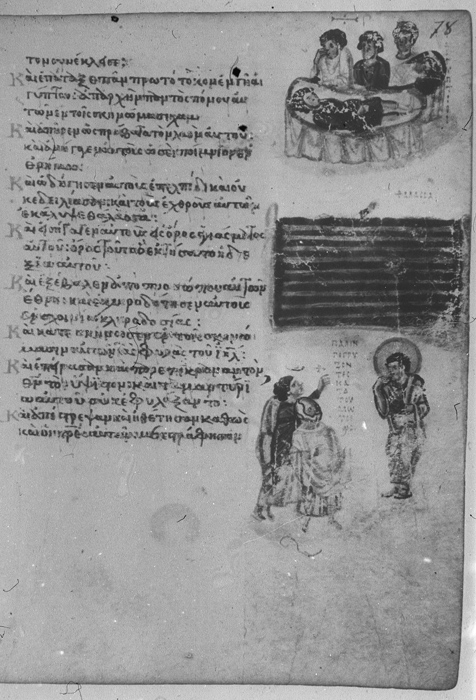 τον συνέκλεισε:
Καὶ ἐπάταξε πᾶν πρωτότοκον ἐν γῆ αἰ
γύπτου: ἀπαρχὴν παντὸς πόνου αὐ
τῶν ἐν τοῖς σκηνώμασι χάμ
Καὶ ἀπῆρεν ὡς πρόβατα τὸν λαὸν αὐτοῦ:
καὶ ἤγαγεν αὐτοὺς ὡσεὶ ποίμνιον ἐν
ἐρήμω:
Καὶ ὡδήγησεν αὐτοὺς ἐπ ἐλπίδι καὶ οὐ
κ ἐδειλίασαν: καὶ τοὺς ἐχθροὺς αὐτῶν
ἐκάλυψε θάλασσα:
Καὶ εἰσήγαγεν αὐτοὺς εἰς ὄρος ἁγιάσματος
αὐτοῦ: ὄρος τοῦτο ὃ ἐκτήσατο ἡ δε
ξιὰ αὐτοῦ:
Καὶ ἐξέβαλεν ἀπὸ προσώπου αὐτῶν
ἔθνη: καὶ ἐκληροδότησεν αὐτοὺς
ἐν σχοινίω κληροδοσίας:
Καὶ κατεσκήνωσεν ἐν τοῖς σκηνώ
μασιν αὐτῶν τὰς φυλὰς τοῦ ἰηλ:
Καὶ ἐπείρασαν καὶ παρεπίκραναν τὸν
θν τὸν ὕψιστον: καὶ τὰ μαρτύρι
α αὐτοῦ οὐκ ἐφυλάξαντο:
Καὶ ἀπέστρεψαν καὶ ἠθέτησαν καθὼς
καὶ οἱ πρες αὐτῶν: μετεστράφησαν
78